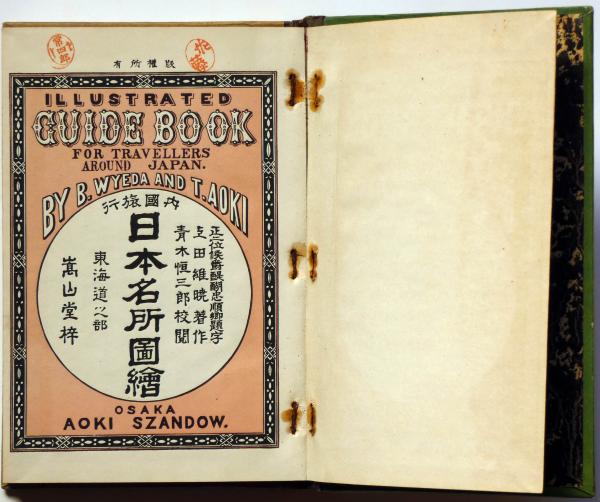 版權所有
ILLUSTRATED
GUIDE BOOK
FOR TRAVELLERS
AROUND JAPAN.
BY B. WYEDA AND T. AOKI
内國旅行
正二位侯爵醍醐忠順卿題字
上田維暁著作
青木恒三郎校閲
日本名所圖繪
東海道之部
嵩山堂梓
OSAKA
AOKI SZANDOW.